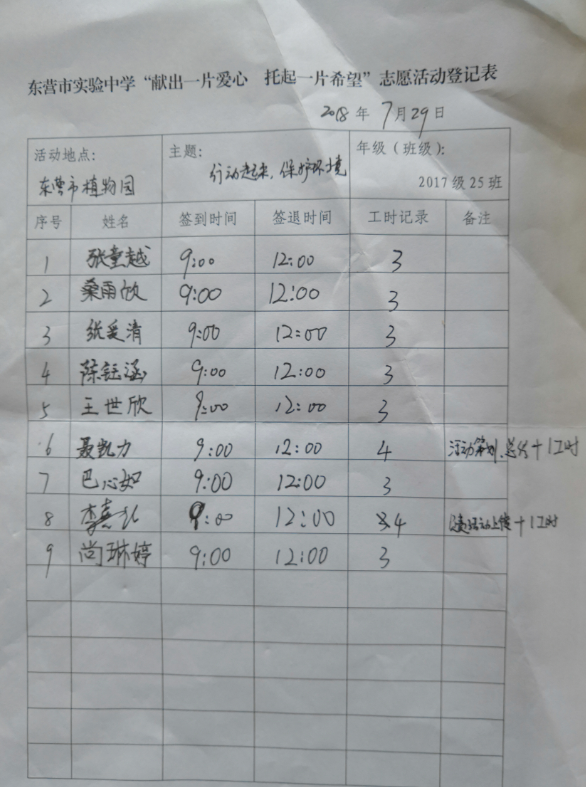 东营市实验中学“献出一片爱心 托起一片希望”志愿活动登记表
2018年7月29日
活动地点: 主题: 年级（班级）:
东营市植物园 行动起来,保护环境 2017级25班
序号 姓名 签到时间 签退时间 工时记录 备注
1 张童越 9:00 12:00 3
2 桑雨欣 9:00 12:00 3
3 张爰清 9:00 12:00 3
4 陈钰涵 9:00 12:00 3
5 王世欣 9:00 12:00 3
6 聂凯力 9:00 12:00 4 活动策划、总结+1工时
7 巴心如 9:00 12:00 3
8 李 9:00 12:00 4 +1工时
9 尚琳婷 9:00 12:00 3